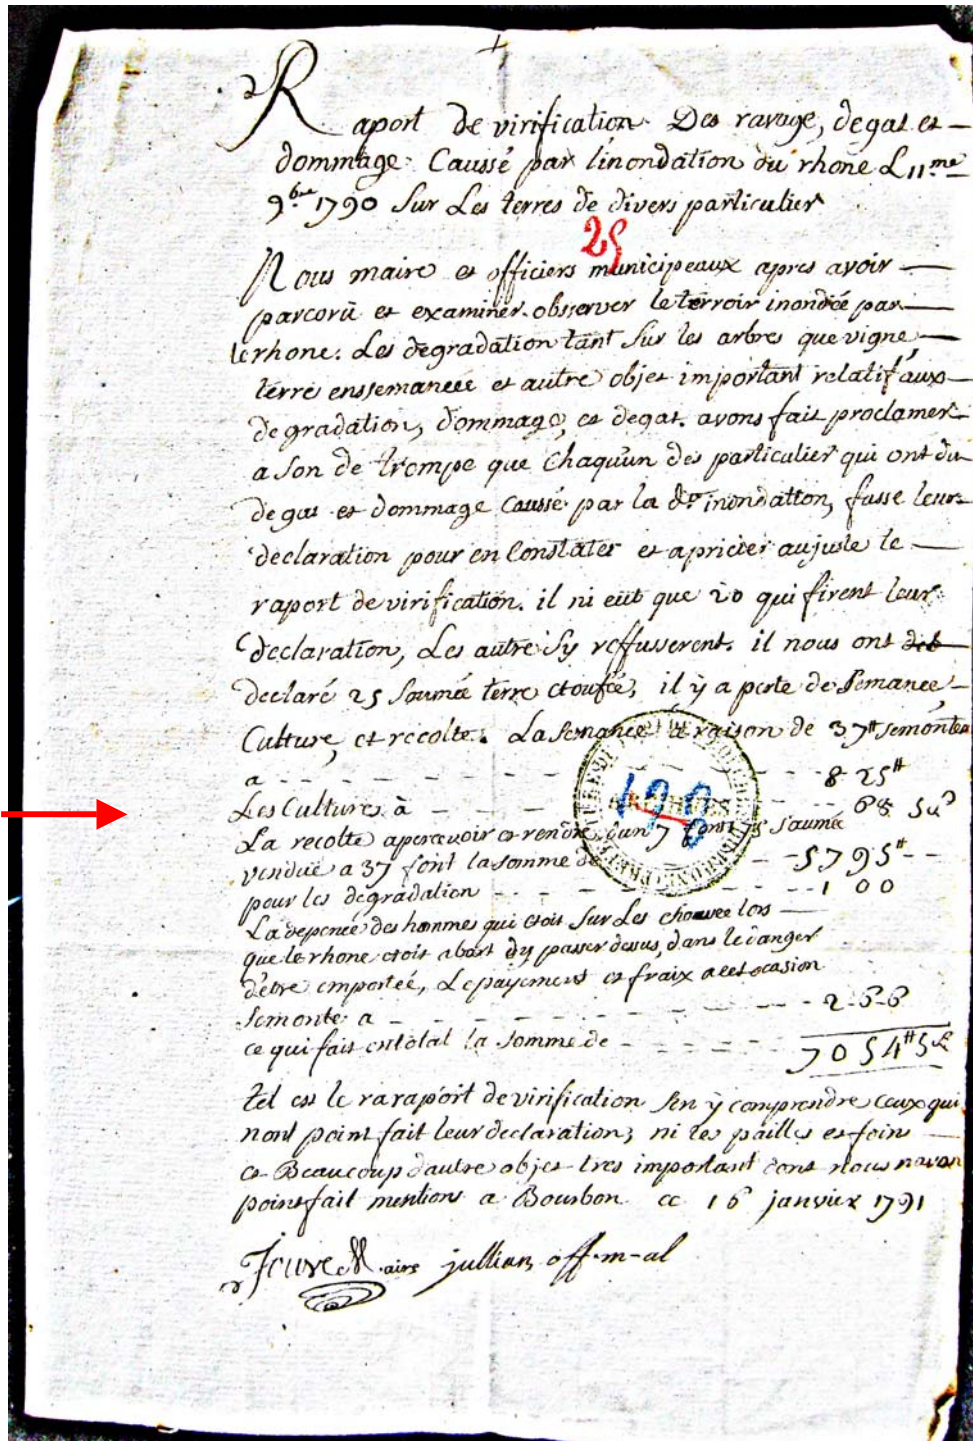 Raport de virification Des ravage, degat et
dommage Caussé par l'inondation du rhone L 11.me
9bre 1790 Sur Les terres de divers particulier
25
Nous maire et officiers municipeaux apres avoir
parcorü et examiner. observer le terroir inondée par
le rhone. Les degradation tant Sur les arbres que vigne
terre enssemancée et autre objet important relatif aux
degradation, dommage, et degat. avons fait proclamer
a Son de trompe que Chaqu'un des particulier qui ont du
degat et dommage Caussé par la dte inondation, fasse leur
declaration pour en Constater et apricier au juste le
raport de virification. il ni eut que 20 qui firent leur
declaration, Les autre Sy reffusserent. il nous ont
declaré 25 Saumée terre etoufée, il ÿ a perte de Semance
Culture, et recolte. La Semance a raison de 37# Semonten
a - - - 825#
Les Culture à - - - 68 5s
La recolte apercevoir et rendre d'un 7 font Saumée
vendue a 37 font la somme de - - - 5795#
pour les degradation - - - 100
La depence des hommes qui etoit Sur Les chaussée lors
que le rhone etoit abort dy passer dessus, dans le danger
d'etre emportée, Le payement et fraix a cet ocasion
Semonte a - - - 266
ce qui fait entotal la Somme de - - - 7054#5s
tel est le raraport de virification Sen ÿ comprendre ceux qui
nont point fait leur declaration, ni les pailles et foins
et Beaucoup d'autre objet tres important dont nous navon
point fait mentions a Bourbon ce 16 janvier 1791
Jouve Maire jullian off-m-al